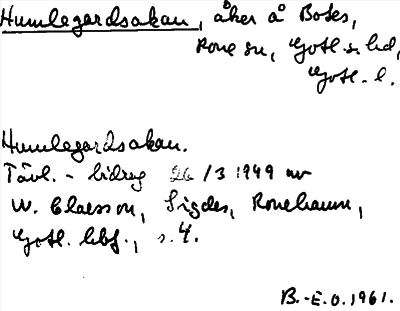 Humlegardsakan, åker å Botes,
Rone sn, Gotl. s. hd,
Gotl. l.
Humlegardsakan.
Tävl.-bidrag 26/3 1949 av
W. Claesson, Sigdes, Ronehamn,
Gotl. hbf., s. 4.
B.-E.O. 1961.